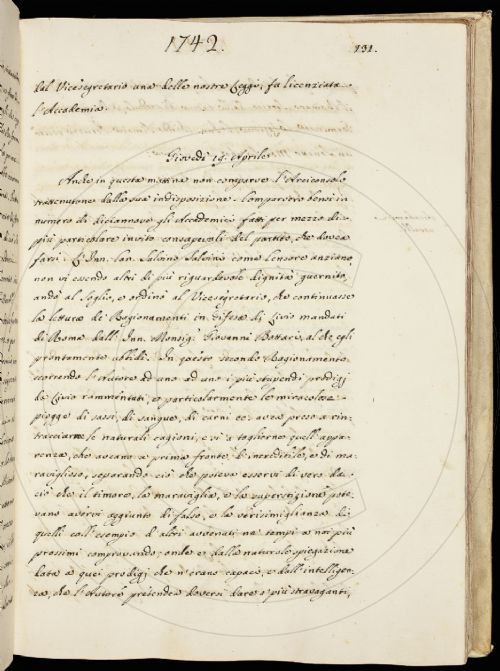 1742.
131.
dal Vicesegretario una delle nostre Leggi, fu licenziata
l'Accademia.
Giovedì 19. Aprile
Anche in questa mattina non comparve l'Arciconsolo
trattenutone dalla sua indisposizione. Comparvero bensì in
numero di diciannove gli Accademici fatti per mezzo di
più particolare invito consapevoli del partito, che dovea
farsi. L'Inn. Can. Salvino Salvini come Censore anziano,
non vi essendo altri di più riguardevole dignità guernito,
andò al soglio, e ordinò al Vicesegretario, che continuasse
la lettura de' Ragionamenti in difesa di Livio mandati
di Roma dall'Inn. Monsig.r Giovanni Bottari, al che egli
prontamente ubbidì. In questo secondo Ragionamento
scorrendo l'Autore ad uno ad uno i più stupendi prodigj
da Livio rammentati, e particolarmente le miracolose
piogge di sassi, di sangue, di carni ec. avea preso a rin-
tracciarne le naturali cagioni, e vi a togliendo quell'appa-
renza, che aveano a prima fronte d'incredibile, e di ma-
raviglioso, separando ciò che poteva esservi di vero da
ciò che il timore, la maraviglia, e la superstizione pote-
vano avervi aggiunto di falso, e la verisimiglianza di
quelli coll'esempio d'altri avvenuti ne' tempi a noi più
prossimi comprovando; onde e dalla naturale spiegazione
data a quei prodigj che n'erano capaci, e dall'intelligen-
za, che l'Autore pretendea doversi dare a' più stravaganti,